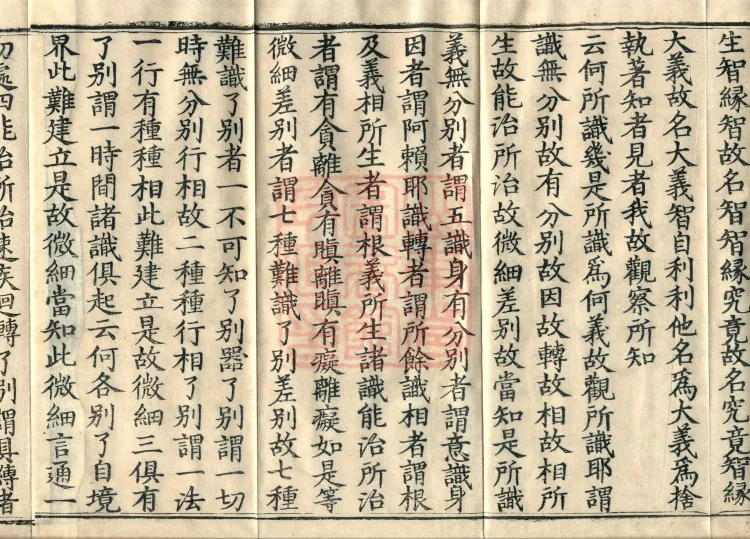 生智縁智故名智智縁究竟故名究竟智縁
大義故名大義智自利利他名爲大義爲捨
執著知者見者我故觀察所知
云何所識幾是所識爲何義故觀所識耶謂
識無分別故有分別故因故轉故相故相所
生故能治所治故微細差別故當知是所識
義無分別者謂五識身有分別者謂意識身
因者謂阿賴耶識轉者謂所餘識相者謂根
及義相所生者謂根義所生諸識能治所治
者謂有貪離貪有瞋離瞋有癡離癡如是等
微細差別者謂七種難識了別差別故七種
難識了別者一不可知了別噐了別謂一切
時無分別行相故二種種行相了別謂一法
一行有種種相此難建立是故微細三俱有
了別謂一時間諸識俱起云何各別了自境
界此難建立是故微細當知此微細言通一
切處四能治所治速疾迴轉了別謂具縛者